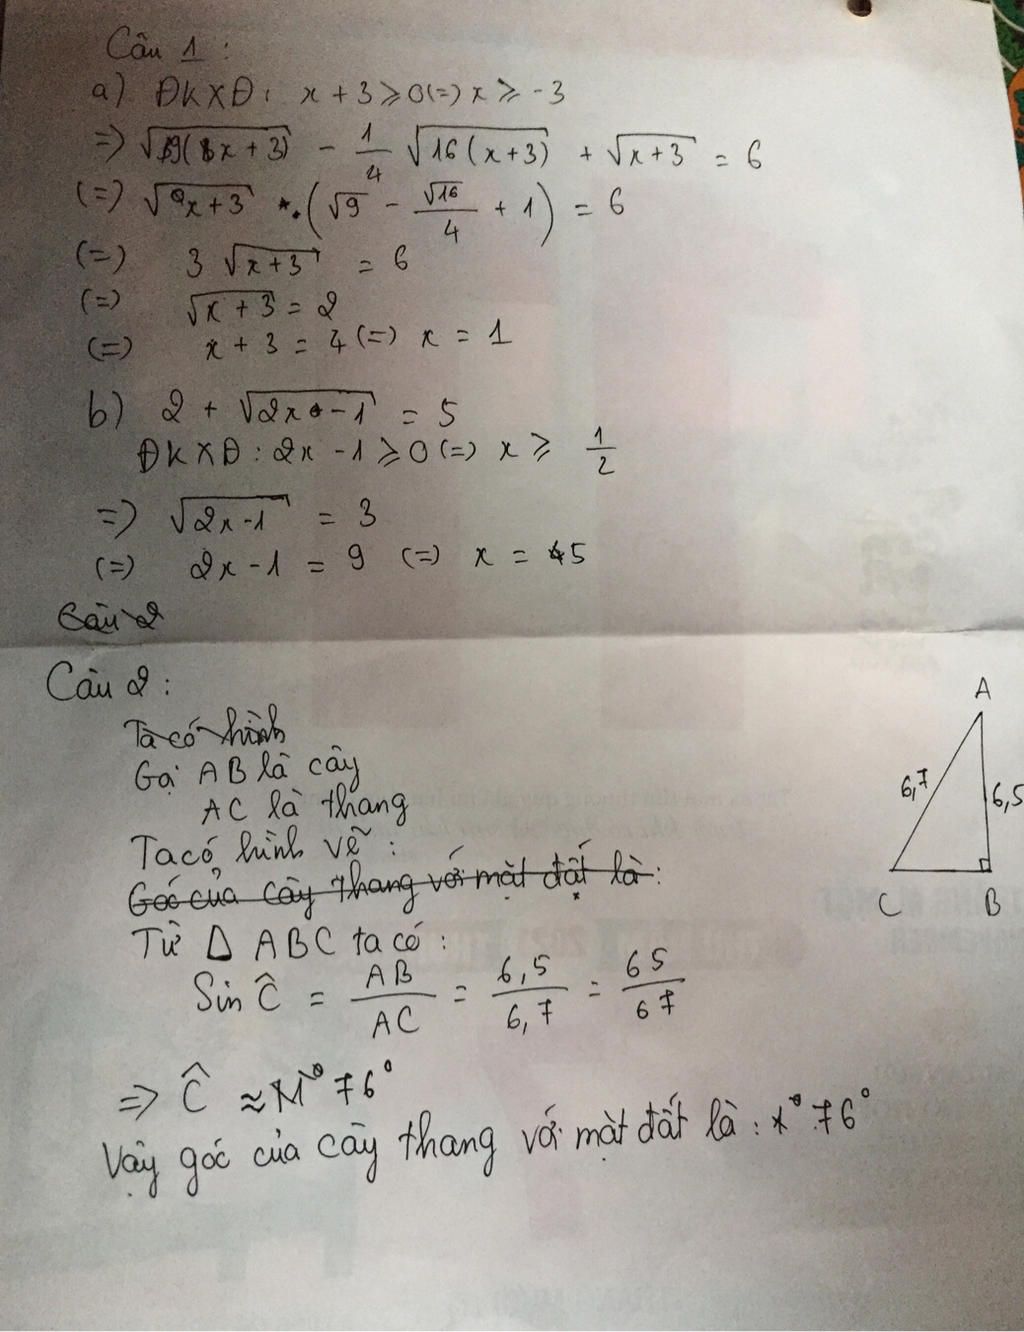 Câu 1 :
a) ĐKXĐ : x + 3 ≥ 0 (=) x ≥ -3
=) √9(x + 3) - 1/4 √16(x+3) + √x+3 = 6
(=) √x+3 . (√9 - √16/4 + 1) = 6
(=) 3 √x+3 = 6
(=) √x + 3 = 2
(=) x + 3 = 4 (=) x = 1
b) 2 + √2x - 1 = 5
ĐKXĐ : 2x - 1 ≥ 0 (=) x ≥ 1/2
=) √2x-1 = 3
(=) 2x - 1 = 9 (=) x = 5
Câu 2
Câu 2 :
Ta có hình
Gọi AB là cây
AC là thang
Ta có hình vẽ :
Góc của cây thang với mặt đất là :
Từ Δ ABC ta có :
Sin Ĉ = AB/AC = 6,5/6,7 = 65/67
=> Ĉ ≈ 76°
Vậy góc của cây thang với mặt đất là : 76°
A
6,7
6,5
C
B